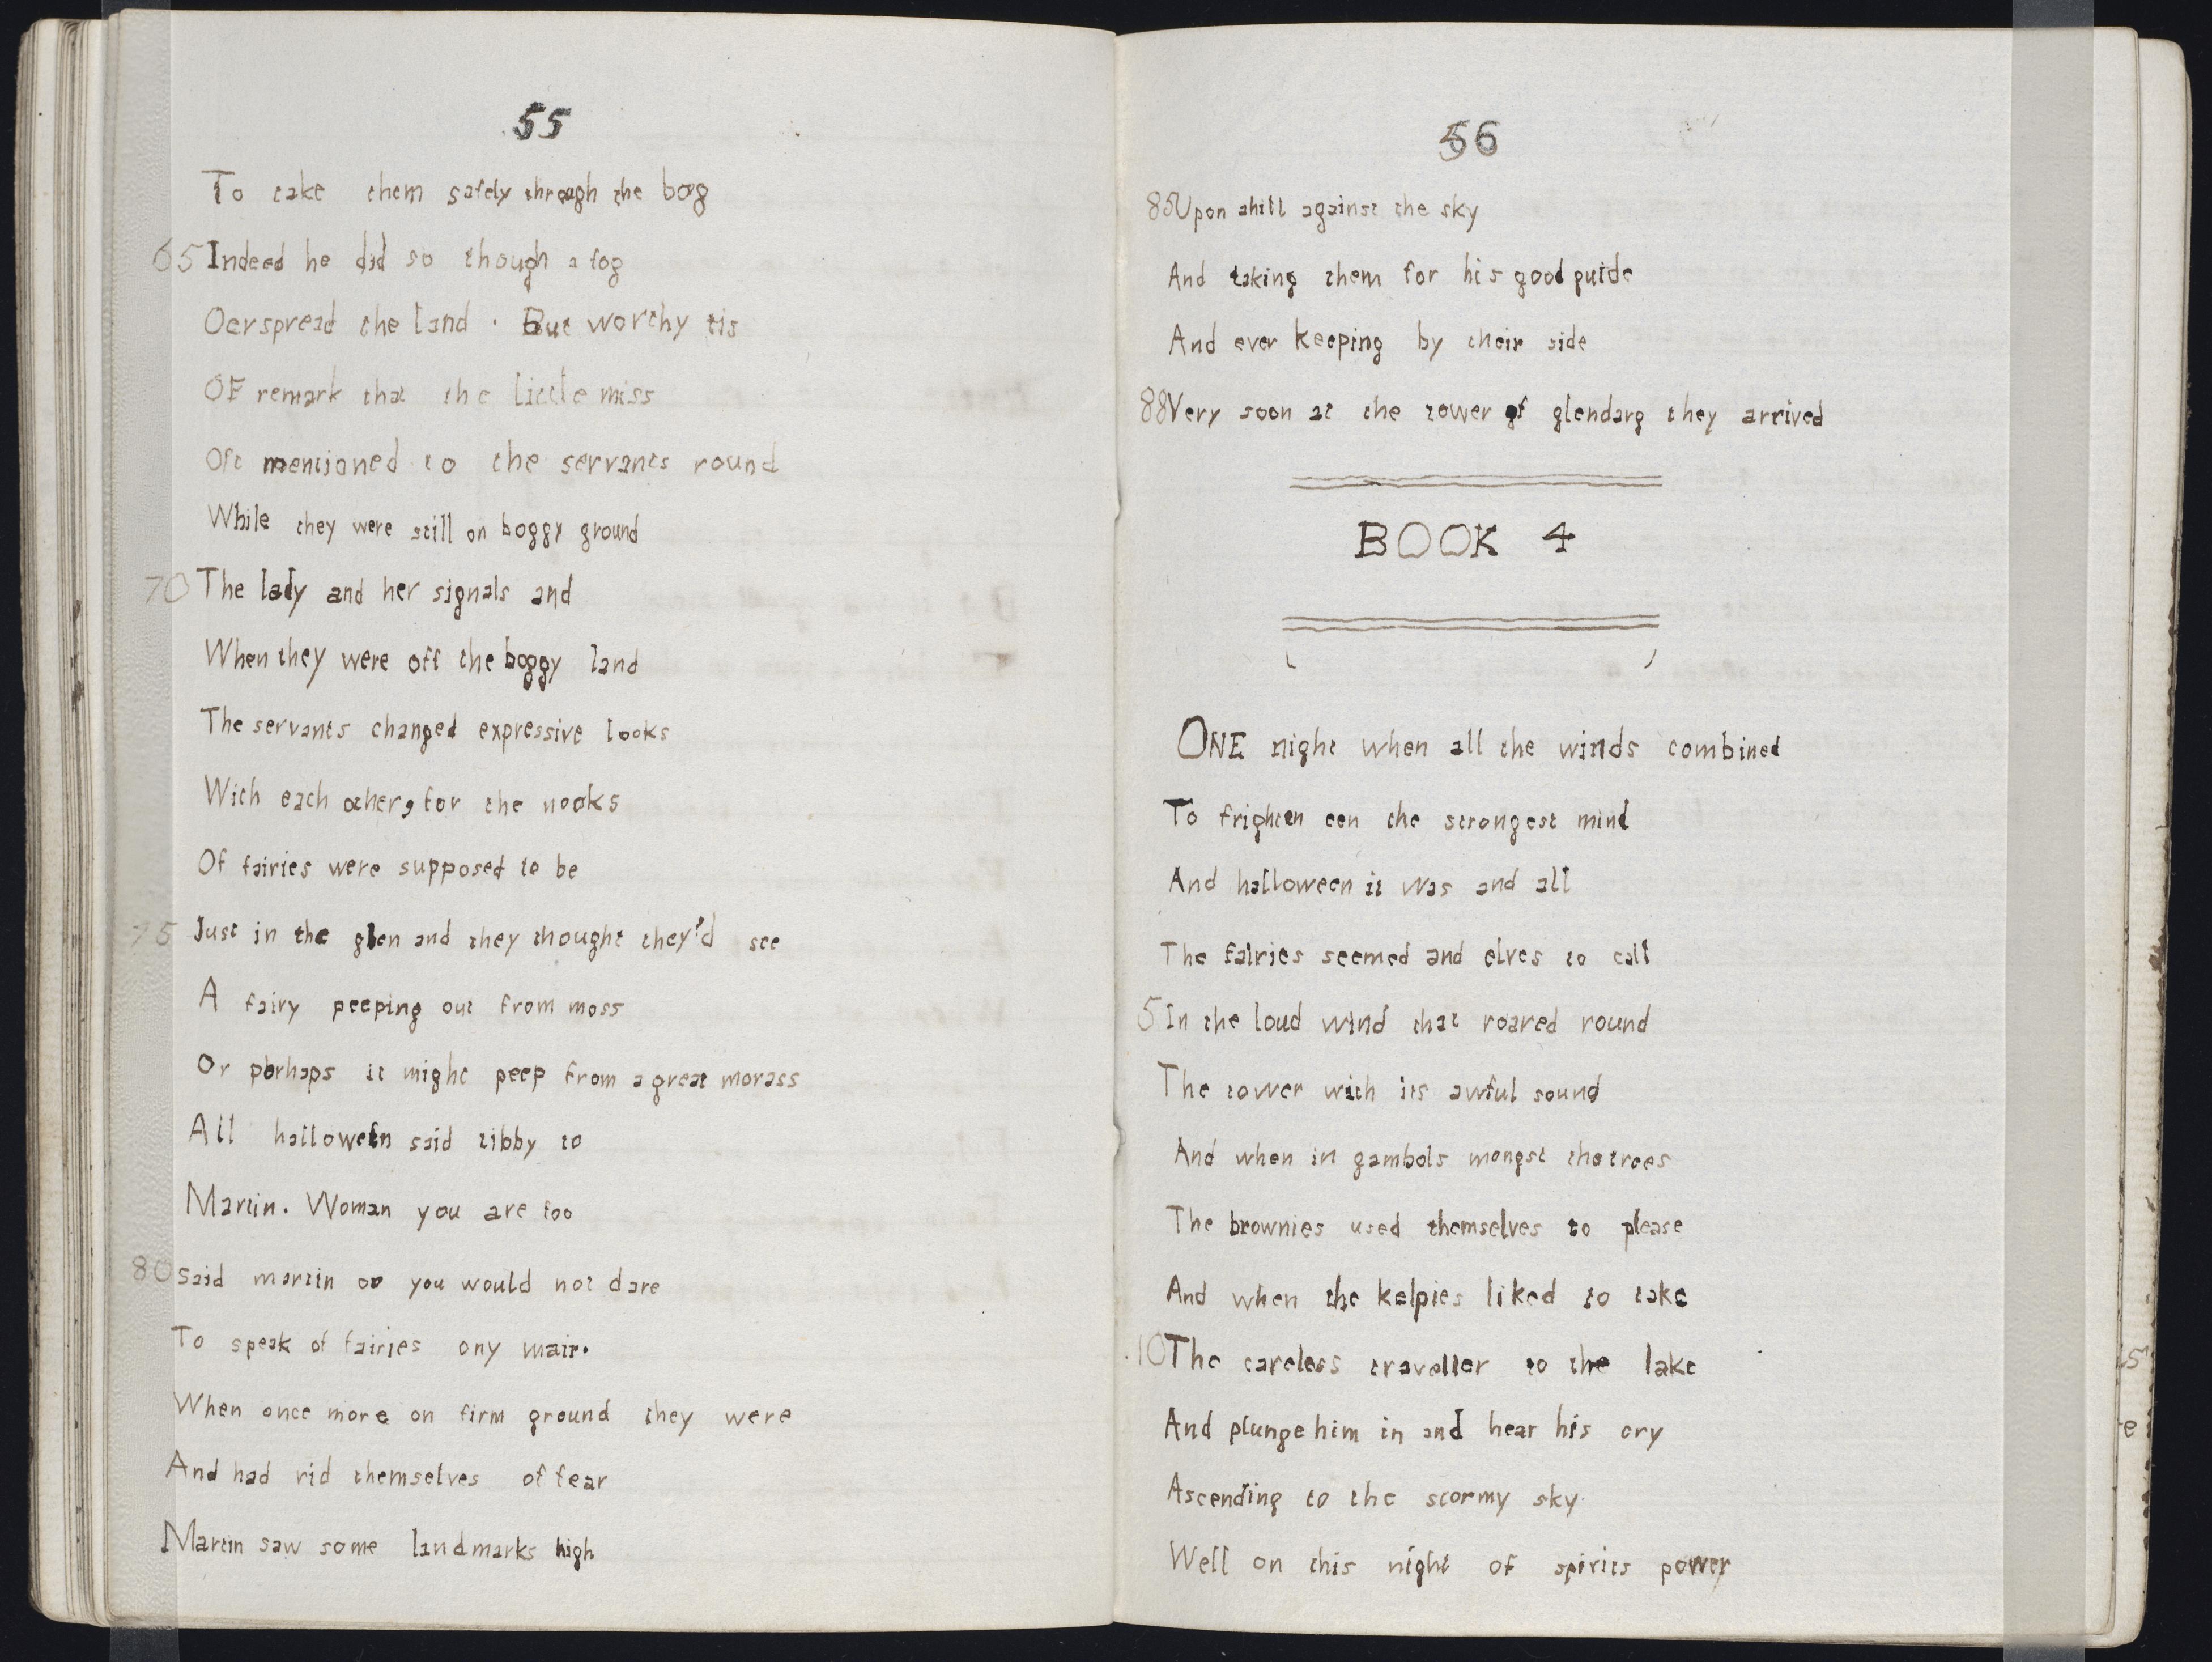 55
To take them safely through the bog
65 Indeed he did so though a fog
Oerspread the land . But worthy tis
OF remark that the little miss
Oft mentioned to the servants round
While they were still on boggy ground
70 The lady and her signals and
When they were off the boggy land
The servants changed expressive looks
With each other, for the nooks
Of fairies were supposed to be
75 Just in the glen and they thought they'd see
A fairy peeping out from moss
Or perhaps it might peep from a great morass
All halloween said tibby to
Martin. Woman you are too
80 said martin or you would not dare
To speak of fairies ony mair.
When once more on firm ground they were
And had rid themselves of fear
Martin saw some landmarks high
56
85 Upon a hill against the sky
And taking them for his good guide
And ever keeping by their side
88 Very soon at the tower of glendarg they arrived
BOOK 4
ONE night when all the winds combined
To frighten een the strongest mind
And halloween it was and all
The fairies seemed and elves to call
5 In the loud wind that roared round
The tower with its awful sound
And when in gambols mongst the trees
The brownies used themselves to please
And when the kelpies liked to take
10 The careless traveller to the lake
And plunge him in and hear his cry
Ascending to the stormy sky
Well on this night of spirits power